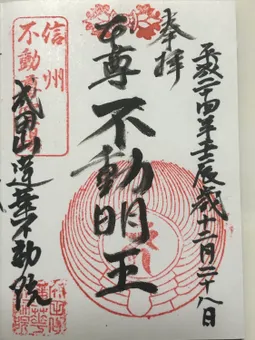 奉拝
平成二十四年壬辰歳十二月二十八日
本尊不動明王
信州
不動尊
成田山蓮華不動院